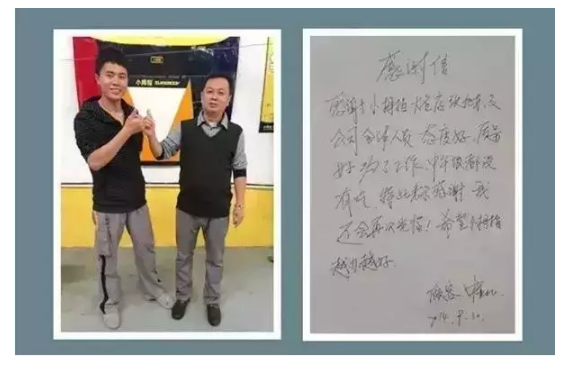 小拇指
感谢信
感谢小拇指店及
公司全体人员 态度好，质量
好 为了工作，中午饭都没
有吃 特此表示感谢 我
还会再次光临！希望小拇指
越办越好.
顾客：
2014.9.30.